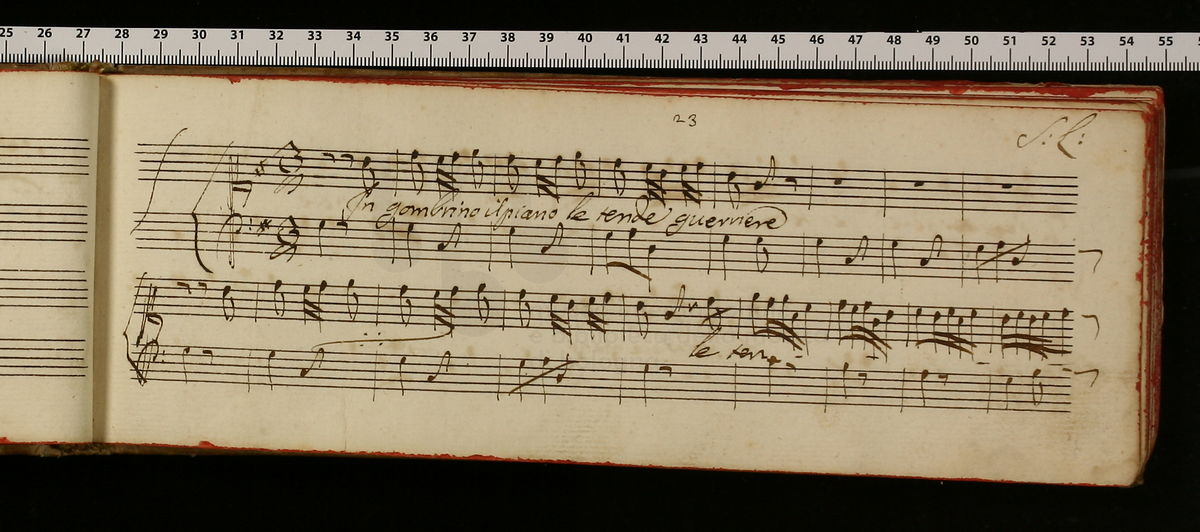 25 26 27 28 29 30 31 32 33 34 35 36 37 38 39 40 41 42 43 44 45 46 47 48 49 50 51 52 53 54 55
23
S: L:
In gombrino il piano le tende guerriere
le ten